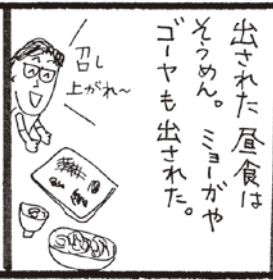 出された昼食は
そうめん。ミョーガや
ゴーヤも出された。
召し
上がれ～